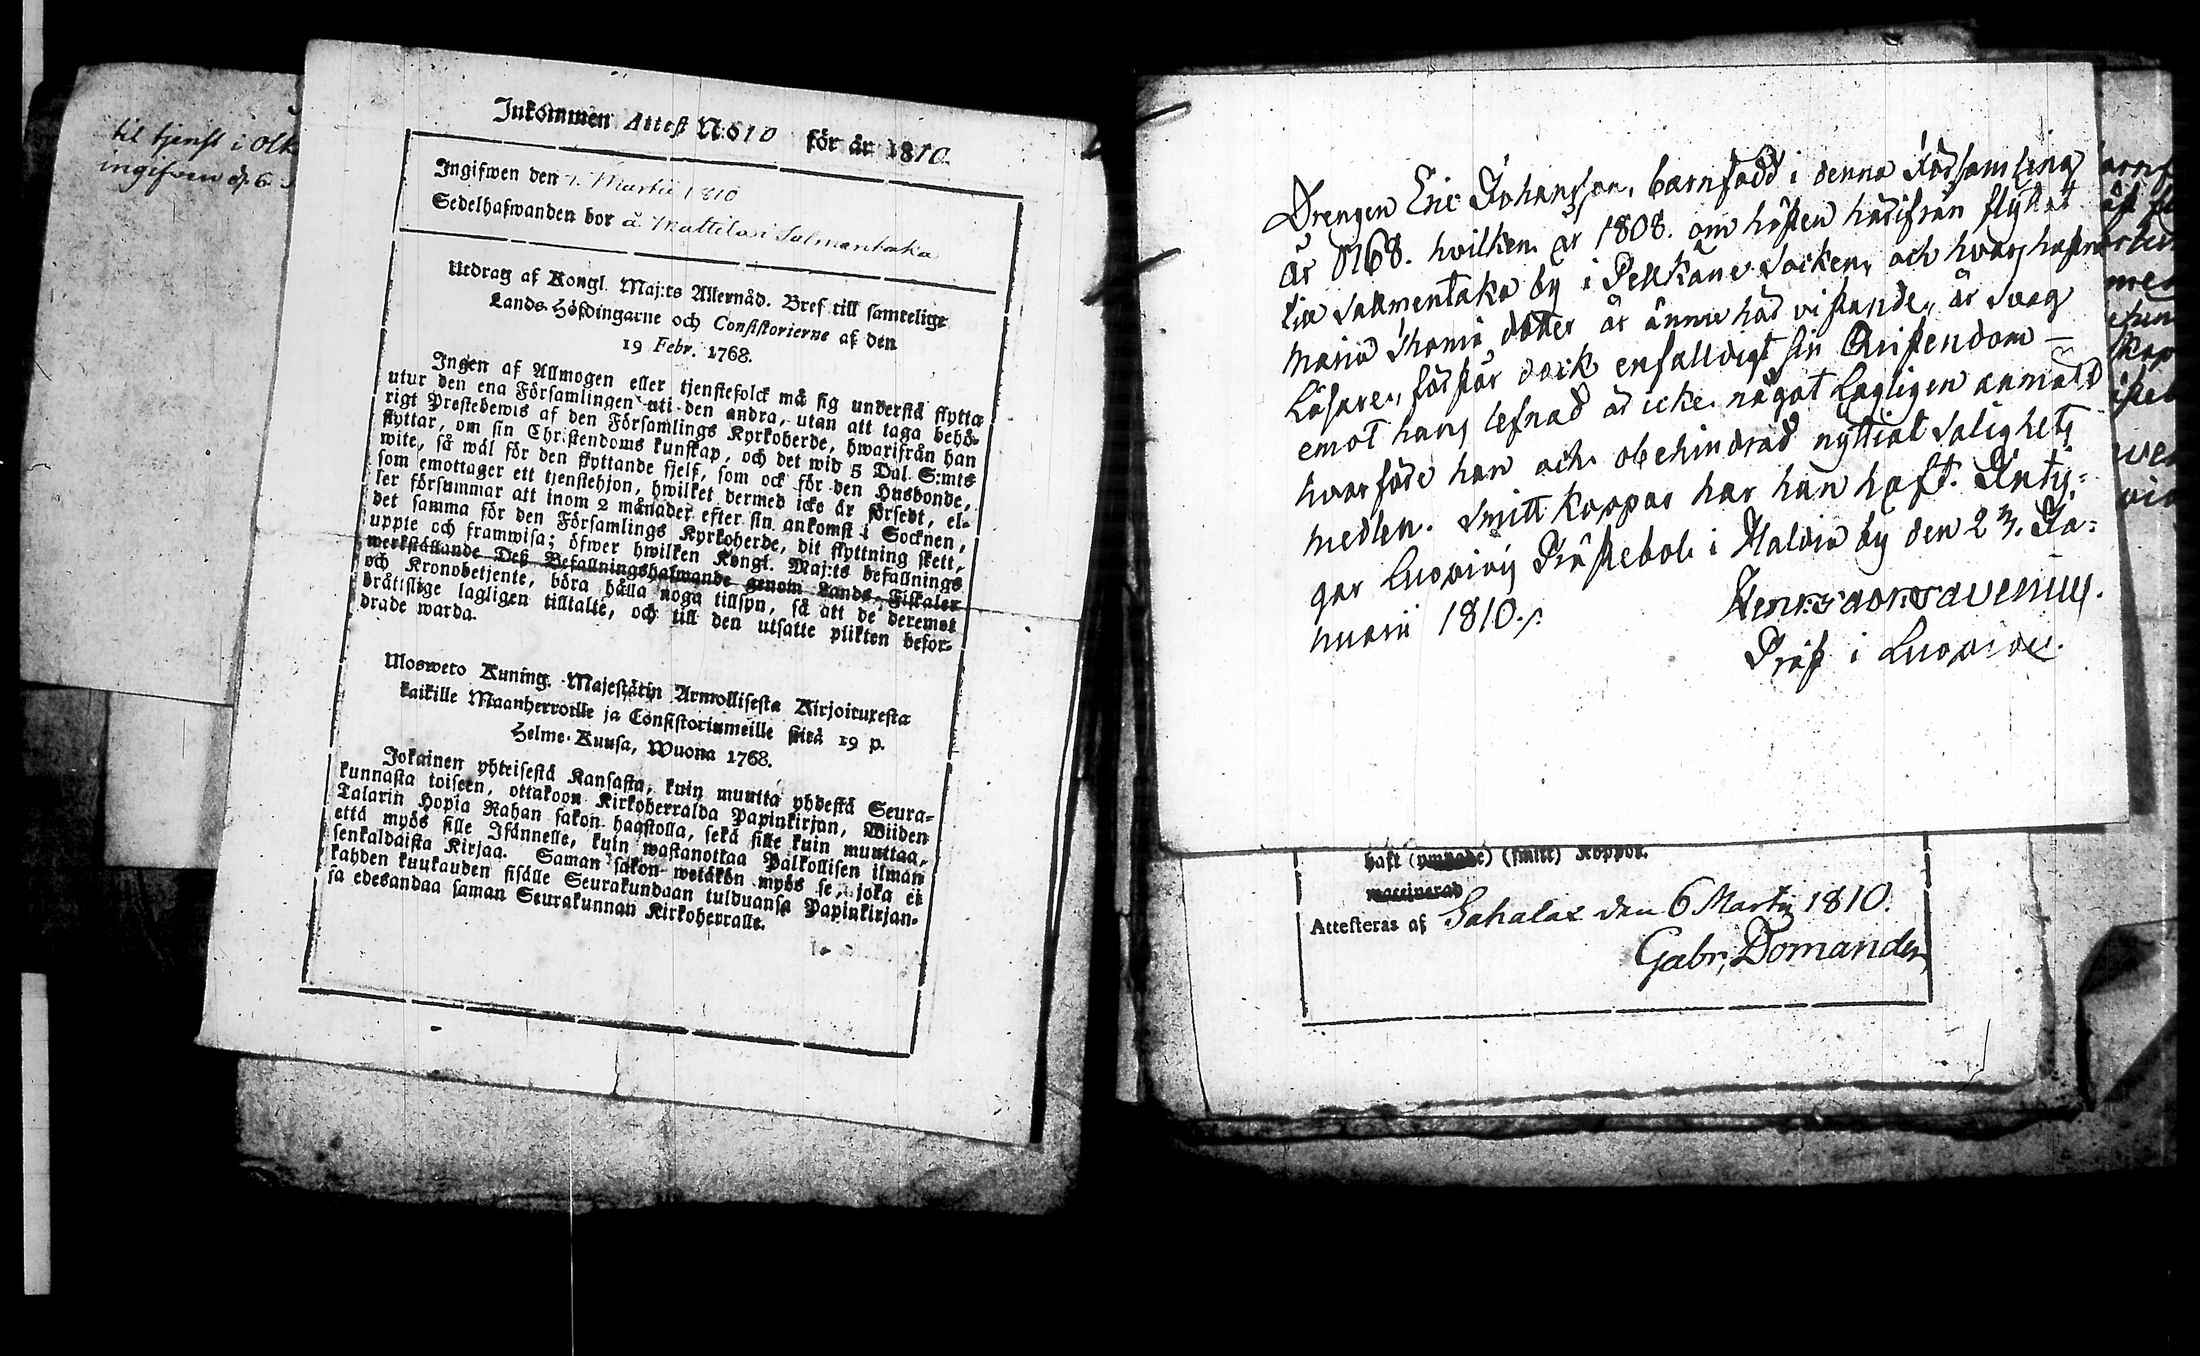 til tjenst i Olk
ingifven d. 6
Inkommen Attest N:o 10 för år 1810.
Ingifwen den 7. Martii 1810
Sedelhafwanden bor å Mattila i Salmentaka
Utdrag af Kongl. Maj:ts Allernåd. Bref till samtelige
Lands-Höfdingarne och Consistorierne af den
19 Febr. 1768.
Ingen af Allmogen eller tjenstefolck må sig understå flytta
utur den ena Församlingen uti den andra, utan att taga behö-
rigt Prestebewis af den Församlings Kyrkoherde, hwarifrån han
flyttar, om sin Christendoms kunskap, och det wid 5 Dal. S:mts
wite, så wäl för den flyttande sjelf, som ock för den Husbonde,
som emottager ett tjenstehjon, hwilket dermed icke är försedt, el-
ler försummar att inom 2 månader efter sin ankomst i Socknen,
det samma för den Församlings Kyrkoherde, dit flyttning skett,
uppte och framwisa; öfwer hwilken Kongl. Maj:ts befallnings
werkställande Deß Befallningshafwande genom Lands-Fiskaler
och Kronobetjente, böra hålla noga tillsyn, så att de deremot
bråttslige lagligen tilltalte, och till den utsatte plikten befor-
drade warda.
Ulosweto Kuning. Majestätin Armollisesta Kirjoituxesta
kaikille Maanherroille ja Consistoriumeille siitä 19 p.
Helme-Kuusa, Wuona 1768.
Jokainen yhteisestä Kansasta, kuin muutta yhdestä Seura-
kunnasta toiseen, ottakoon Kirkoherralda Papinkirjan, Wiiden
Talarin Hopia Rahan sakon haastolla, sekä sille kuin muuttaa,
että myös sille Isännelle, kuin wastanottaa Palkollisen ilman
senkaldaista Kirjaa. Saman sakon wetäkön myös se, joka ei
kahden kuukauden sisälle Seurakundaan tulduansa Papinkirjan-
sa edesandaa saman Seurakunnan Kirkoherralle.
Drengen Eric Johansson, barnfödd i denna Församling
år 1768. hvilken år 1808. om hösten härifrån flyttat
till Salmentaka by i Pelkäne Socken, och hvars hustru
Maria Thoma dotter är ännu här vistande, är svag
Läsare, förstår dock enfalldigt sin Christendom —
emot hans lefnad är icke något Lagligen anmäld
hvarföre han och obehindrad nyttiat Salighets
medlen. Smittkoppor har han haft. Inty-
gar Luopiois Prästebol i Haldia by den 2 . Ja-
nuarii 1810.
Präst i Luopiois.
haft (smitt) Koppor.
Attesteras af Sahalax den 6 Martij 1810.
Gabr. Domander